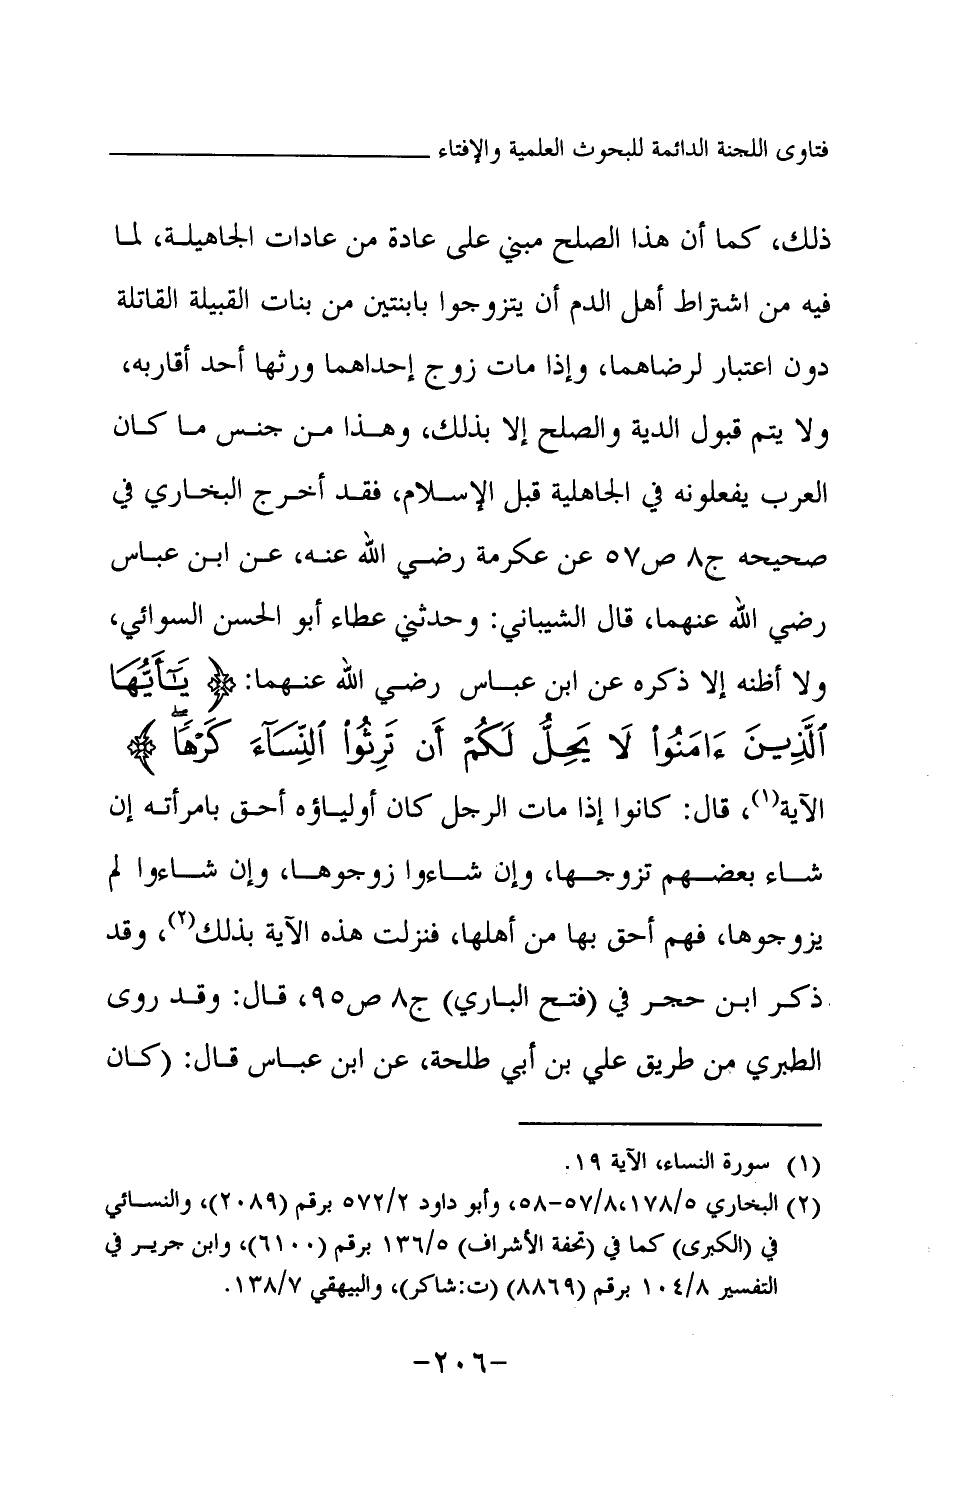 فتاوى اللجنة الدائمة للبحوث العلمية والإفتاء
ذلك، كما أن هذا الصلح مبني على عادة من عادات الجاهيلة، لما
فيه من اشتراط أهل الدم أن يتزوجوا بابنتين من بنات القبيلة القاتلة
دون اعتبار لرضاهما، وإذا مات زوج إحداهما ورثها أحد أقاربه،
ولا يتم قبول الدية والصلح إلا بذلك، وهذا من جنس ما كان
العرب يفعلونه في الجاهلية قبل الإسلام، فقد أخرج البخاري في
صحيحه ج٨ ص٥٧ عن عكرمة رضي الله عنه، عن ابن عباس
رضي الله عنهما، قال الشيباني: وحدثني عطاء أبو الحسن السوائي،
ولا أظنه إلا ذكره عن ابن عباس رضي الله عنهما: ﴿ يَٰٓأَيُّهَا
ٱلَّذِينَ ءَامَنُوا۟ لَا يَحِلُّ لَكُمْ أَن تَرِثُوا۟ ٱلنِّسَآءَ كَرْهًاۖ ﴾
الآية(١)، قال: كانوا إذا مات الرجل كان أولياؤه أحق بامرأته إن
شاء بعضهم تزوجها، وإن شاءوا زوجوها، وإن شاءوا لم
يزوجوها، فهم أحق بها من أهلها، فنزلت هذه الآية بذلك(٢)، وقد
ذكر ابن حجر في (فتح الباري) ج٨ ص٩٥، قال: وقد روى
الطبري من طريق علي بن أبي طلحة، عن ابن عباس قال: (كان
(١) سورة النساء، الآية ١٩.
(٢) البخاري ١٧٨/٥، ٥٧/٨-٥٨، وأبو داود ٥٧٢/٢ برقم (٢٠٨٩)، والنسائي
في (الكبرى) كما في (تحفة الأشراف) ١٣٦/٥ برقم (٦١٠٠)، وابن جرير في
التفسير ١٠٤/٨ برقم (٨٨٦٩) (ت:شاكر)، والبيهقي ١٣٨/٧.
-٢٠٦-